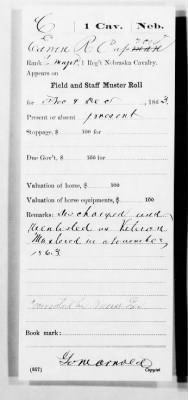 C
1 Cav.
Neb.
R. Cap
Rank Major, 1 Reg't Nebraska Cavalry.
Appears on
Field and Staff Muster Roll
for Nov & Dec, 1863
Present or absent present
Stoppage, $ 100 for
Due Gov't, $ 100 for
Valuation of home, $ 100
Valuation of horse equipments, $ 100
Remarks: Discharged and
Reenlisted as Veteran
Mustered in November
1863
Book mark:
(857)
Copyist